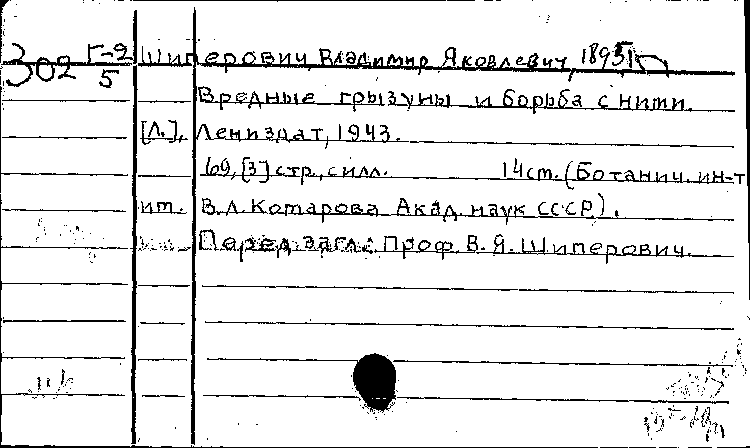 302 Г-2/5 Шиперович, Владимир Яковлевич, 1895
Вредные грызуны и борьба с ними.
[Л.], Лениздат, 1943.
69, [3] стр., с илл. 14 см. (Ботанич. ин-т
им. В.Л. Комарова Акад. наук СССР).
Перед загл.: Проф. В. Я. Шиперович.